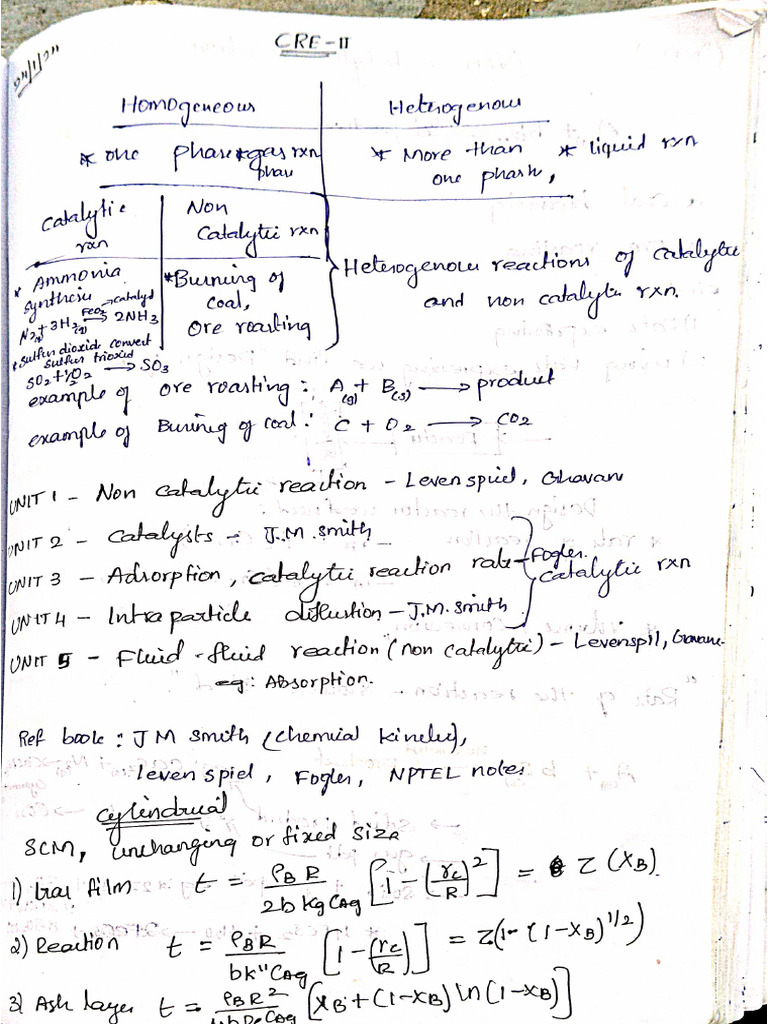 CRE-II
24/1/24
Homogeneous
Heterogenous
* one phase * gas rxn
phase
* More than * liquid rxn
one phase,
Catalytic rxn
Non Catalytic rxn
* Ammonia synthesis
N2(g) + 3H2(g) → 2NH3
FeO2 catalyst
* sulfur dioxid convert
sulfur trioxid
SO2 + 1/2 O2 → SO3
* Burning of coal,
Ore roasting
Heterogenous reactions of catalytic
and non catalytic rxn.
example of ore roasting: A(g) + B(s) → product
example of Burning of coal: C + O2 → CO2
UNIT 1 - Non catalytic reaction - Levenspiel, Ghavane
UNIT 2 - catalysts - J.M. smith
UNIT 3 - Adsorption, catalytic reaction rate - Fogler.
catalytic rxn
UNIT 4 - Intraparticle diffustion - J.M. smith
UNIT 5 - Fluid-fluid reaction (non catalytic) - Levenspil, Gavane.
eg: Absorption.
Ref book: J M smith (chemical kinetic),
levenspiel, Fogler, NPTEL notes
cylindrical
SCM, unchanging or fixed size
1) Gas film t = ρB R / 2b kg CAg [1 - (rc/R)^2] = τ (XB).
2) Reaction t = ρB R / bk" CAg [1 - (rc/R)] = τ(1 - (1-XB)^1/2)
3) Ash layer t = ρB R^2 / 4b De CAg [XB + (1-XB) ln (1-XB)]